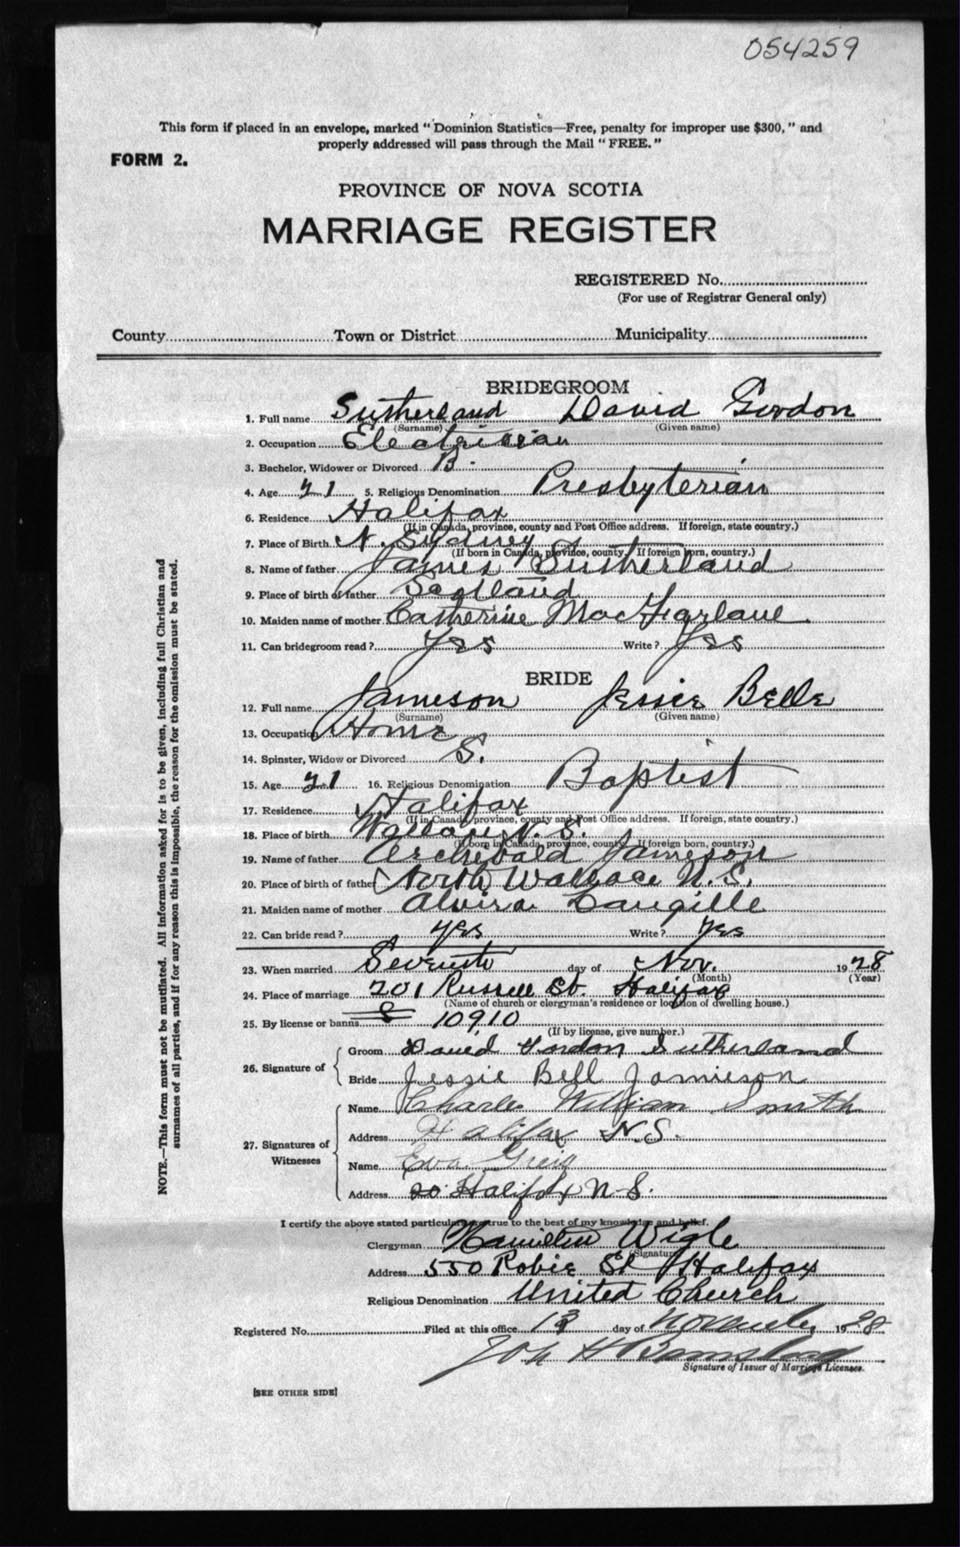 054259
This form if placed in an envelope, marked "Dominion Statistics—Free, penalty for improper use $300," and
properly addressed will pass through the Mail "FREE."
FORM 2.
PROVINCE OF NOVA SCOTIA
MARRIAGE REGISTER
REGISTERED No.
(For use of Registrar General only)
County Town or District Municipality
BRIDEGROOM
1. Full name Sutherland David Gordon
(Surname) (Given name)
2. Occupation Electrician
3. Bachelor, Widower or Divorced B.
4. Age 21 5. Religious Denomination Presbyterian
6. Residence Halifax
(If in Canada, province, county and Post Office address. If foreign, state country.)
7. Place of Birth N. Sydney
(If born in Canada, province, county. If foreign born, country.)
8. Name of father James Sutherland
9. Place of birth of father Scotland
10. Maiden name of mother Catherine MacFarlane
11. Can bridegroom read? Yes Write? Yes
BRIDE
12. Full name Jameson Jessie Belle
(Surname) (Given name)
13. Occupation Home
14. Spinster, Widow or Divorced S.
15. Age 21 16. Religious Denomination Baptist
17. Residence Halifax
(If in Canada, province, county and Post Office address. If foreign, state country.)
18. Place of birth Wallace N.S.
(If born in Canada, province, county. If foreign born, country.)
19. Name of father Archebald Jameson
20. Place of birth of father North Wallace N.S.
21. Maiden name of mother Alvira Langille
22. Can bride read? yes Write? Yes
23. When married Seventh day of Nov. 1928
(Month) (Year)
24. Place of marriage 201 Russell St. Halifax
(Name of church or clergyman's residence or location of dwelling house.)
25. By license or banns 10910
(If by license, give number.)
26. Signature of
Groom David Gordon Sutherland
Bride Jessie Bell Jamieson
27. Signatures of Witnesses
Name Charles William Smith
Address Halifax N.S.
Name Eva Greig
Address Halifax N.S.
I certify the above stated particulars are true to the best of my knowledge and belief.
Clergyman Hamilton Wigle
(Signature)
Address 550 Robie St Halifax
Religious Denomination United Church
Registered No. Filed at this office 13 day of November 1928
Signature of Issuer of Marriage Licenses.
[SEE OTHER SIDE]
NOTE.—This form must not be mutilated. All information asked for is to be given, including full Christian and
surnames of all parties, and if for any reason this is impossible, the reason for the omission must be stated.